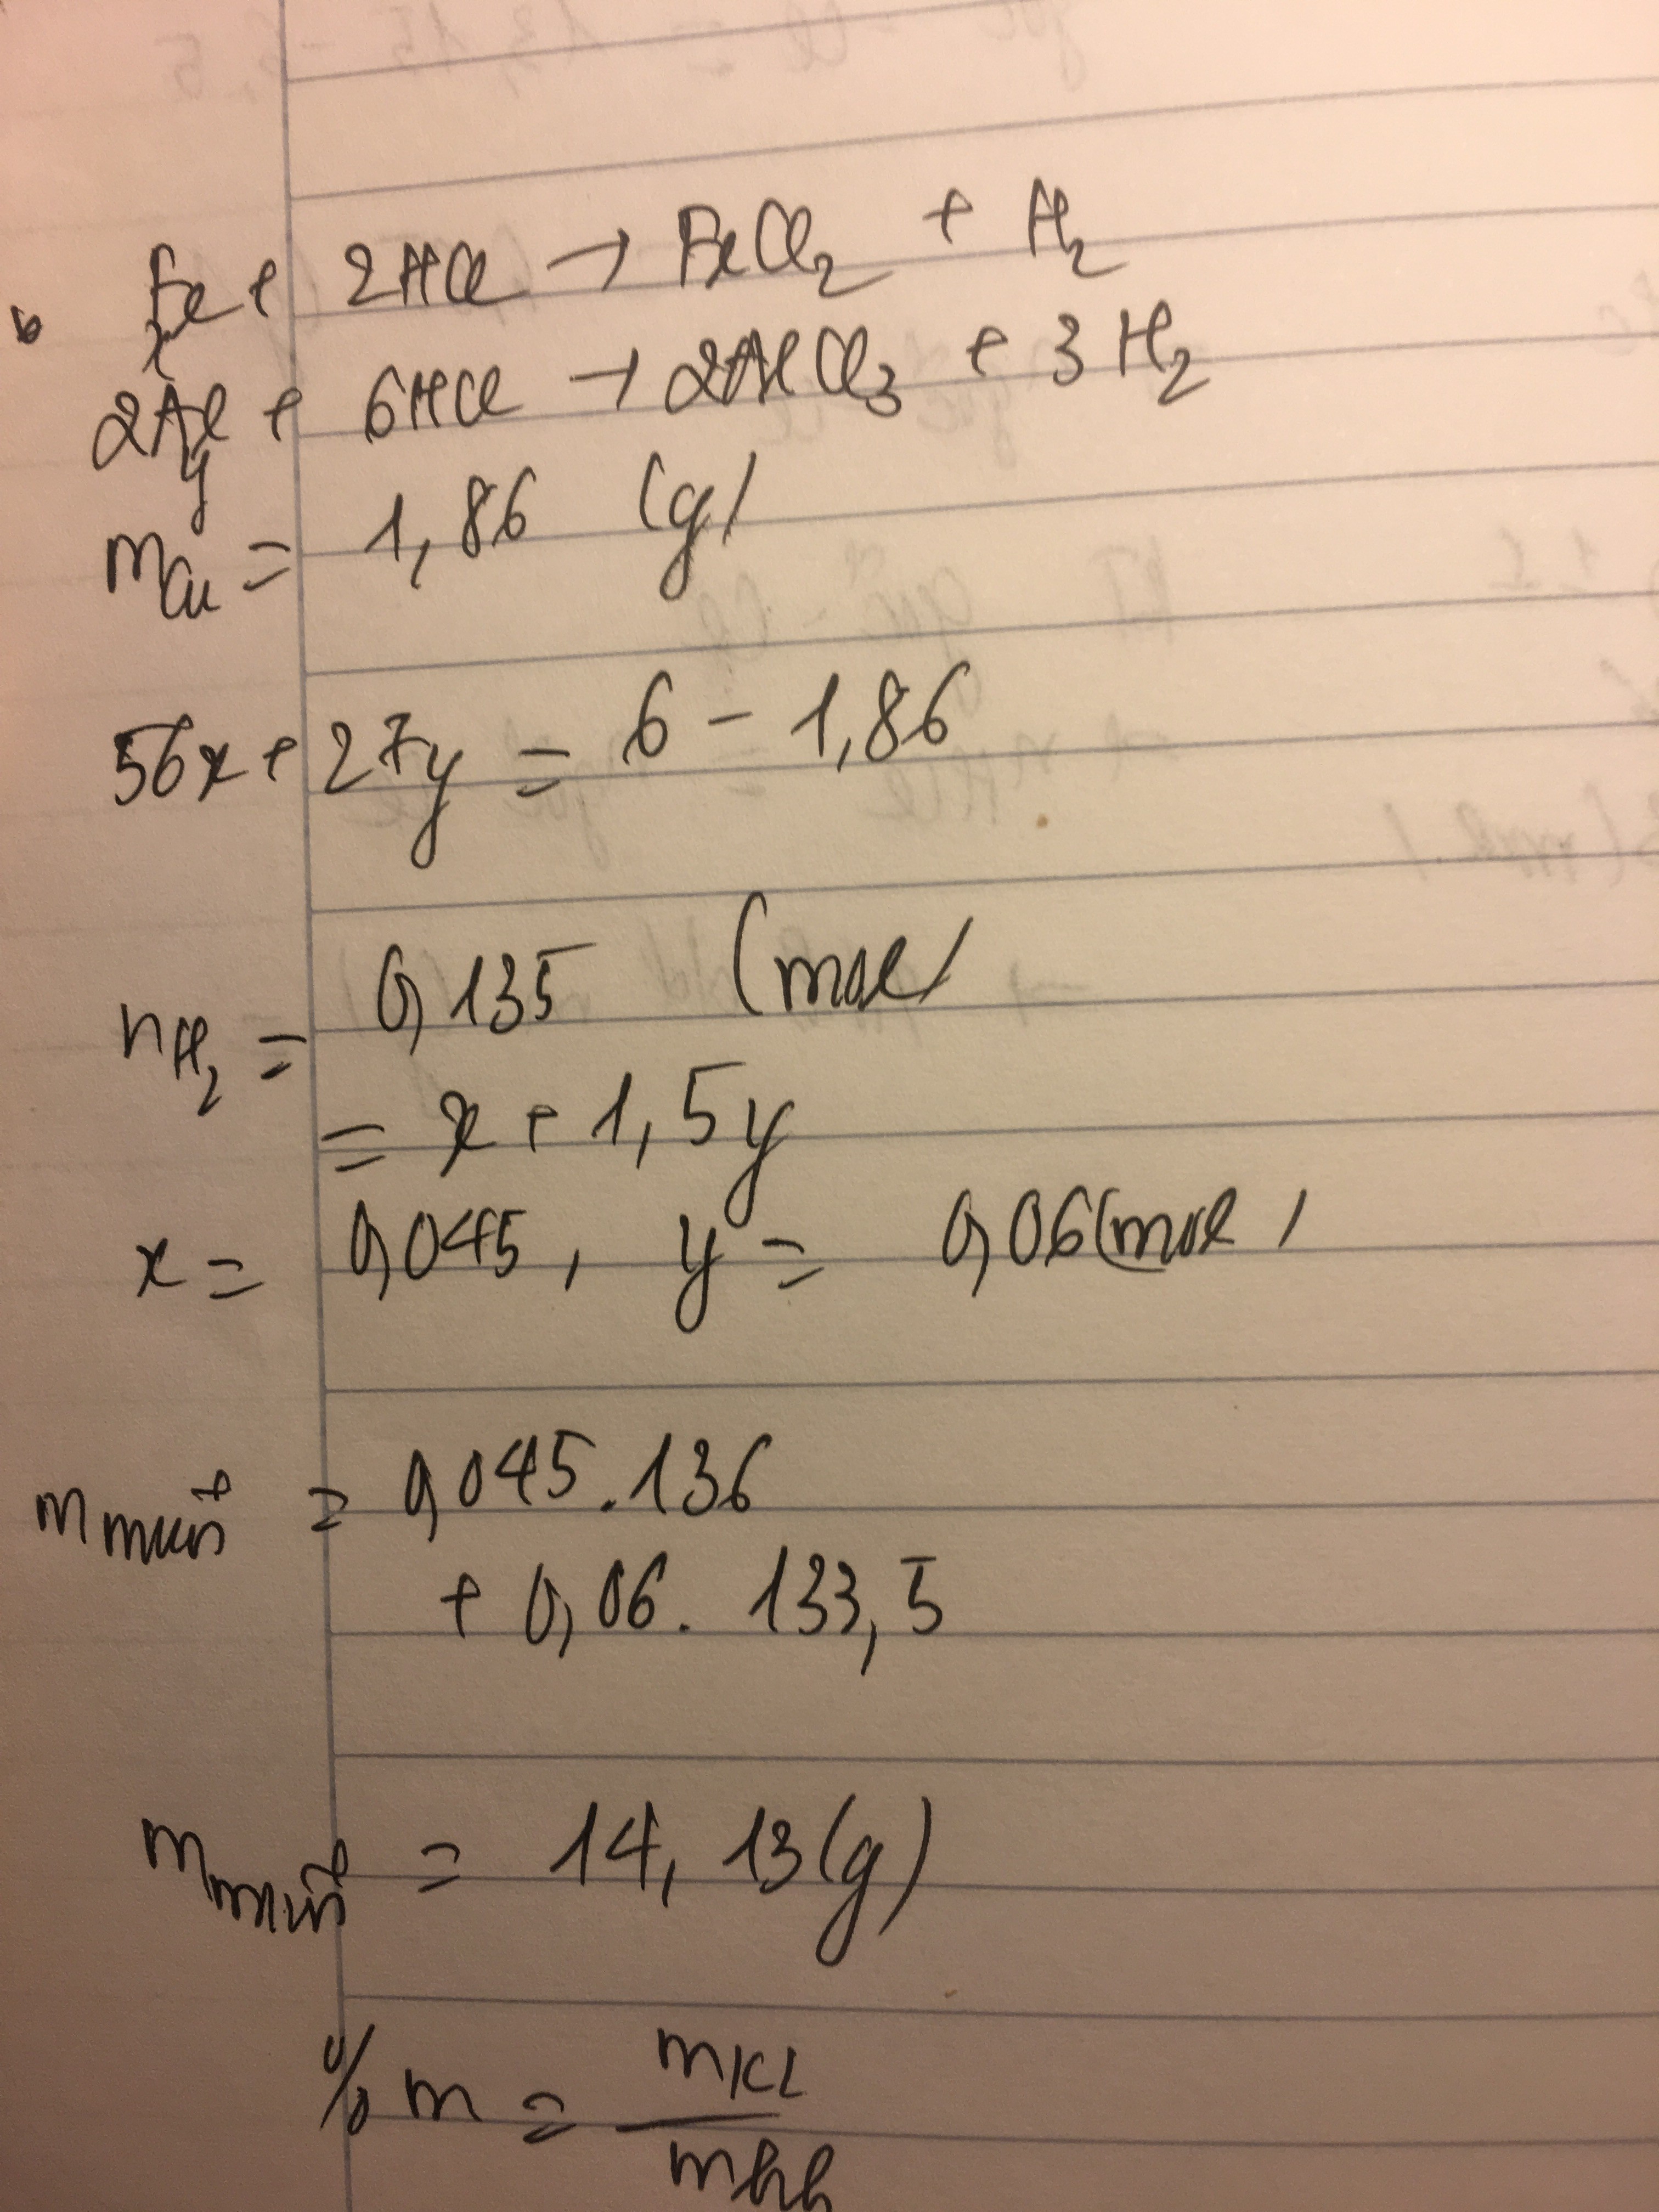 Fe + 2HCl → FeCl2 + H2
x
2Al + 6HCl → 2AlCl3 + 3H2
y
mCu = 1,86 (g)
56x + 27y = 6 - 1,86
nH2 = 0,135 (mol)
= x + 1,5y
x = 0,045, y = 0,06 (mol)
m muối = 0,045.136
+ 0,06. 133,5
m muối = 14,13 (g)
%m = mKL
mhh